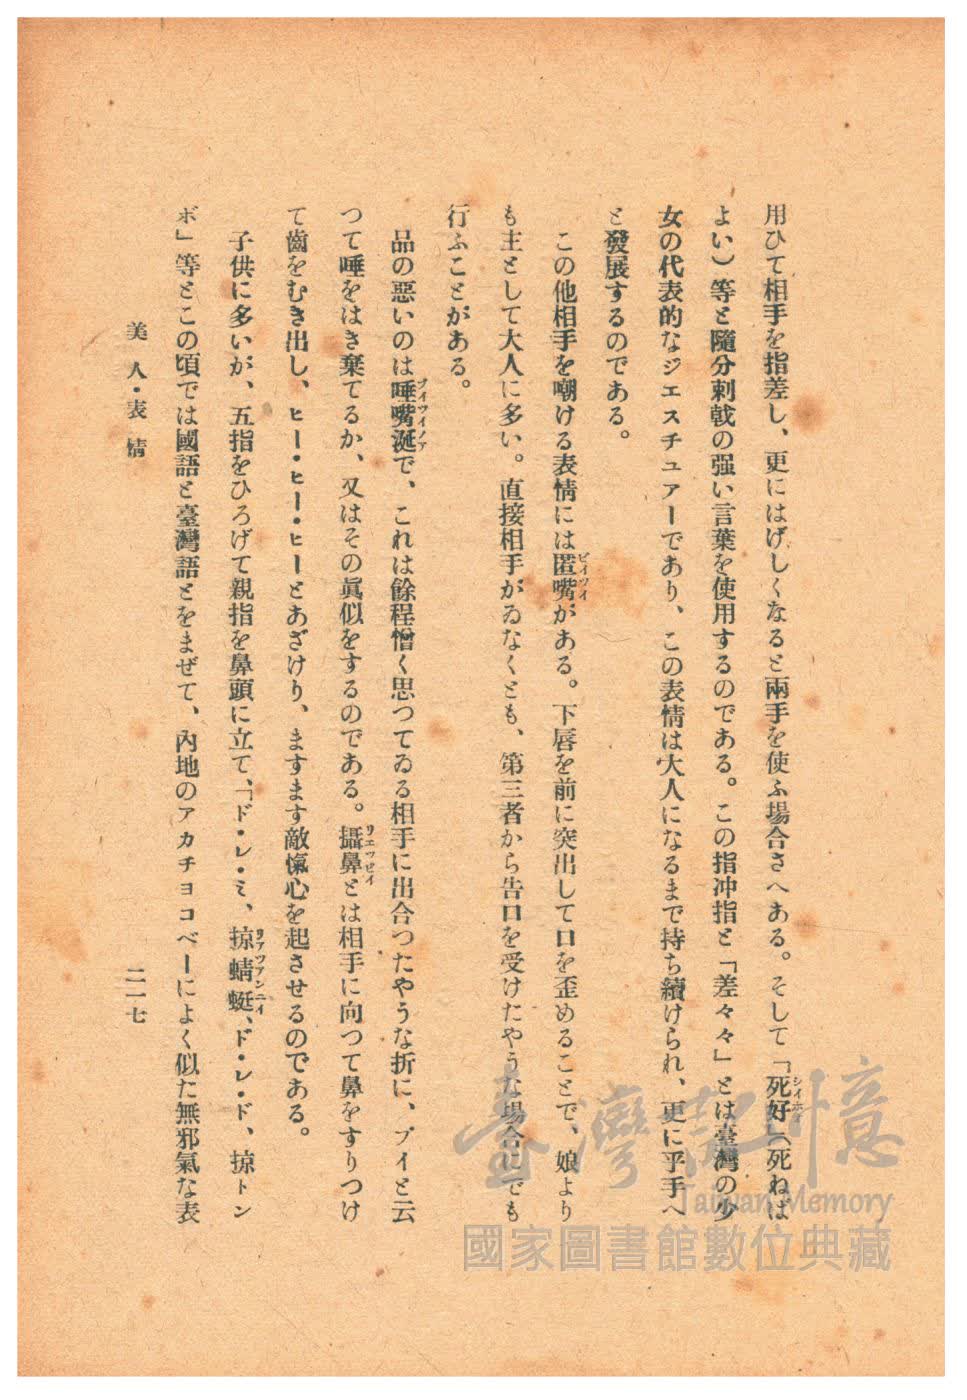 用ひて相手を指差し、更にはげしくなると兩手を使ふ場合さへある。そして「死好」(死ねば
よい)等と隨分刺戟の强い言葉を使用するのである。この指冲指と「差々々」とは臺灣の少
女の代表的なジエスチュアーであり、この表情は大人になるまで持ち續けられ、更に乎手へ
と發展するのである。
この他相手を嘲ける表情には匿嘴がある。下唇を前に突出して口を歪めることで、娘より
ビイツイ
も主として大人に多い。直接相手がゐなくとも、第三者から告口を受けたやうな場合にでも
行ふことがある。
品の惡いのは唾嘴涎で、これは餘程憎く思つてゐる相手に出合つたやうな折に、プイと云
プイツイノア
つて唾をはき棄てるか、又はその眞似をするのである。攝鼻とは相手に向つて鼻をすりつけ
て齒をむき出し、ヒー・ヒー・ヒーとあざけり、ますます敵愾心を起させるのである。
子供に多いが、五指をひろげて親指を鼻頭に立て、「ド・レ・ミ、掠蜻蜓、ド・レ・ド、掠トン
ボ」等とこの頃では國語と臺灣語とをまぜて、內地のアカチョコベーによく似た無邪氣な表
美人・表情
二一七
臺灣記憶
Taiwan Memory
國家圖書館數位典藏